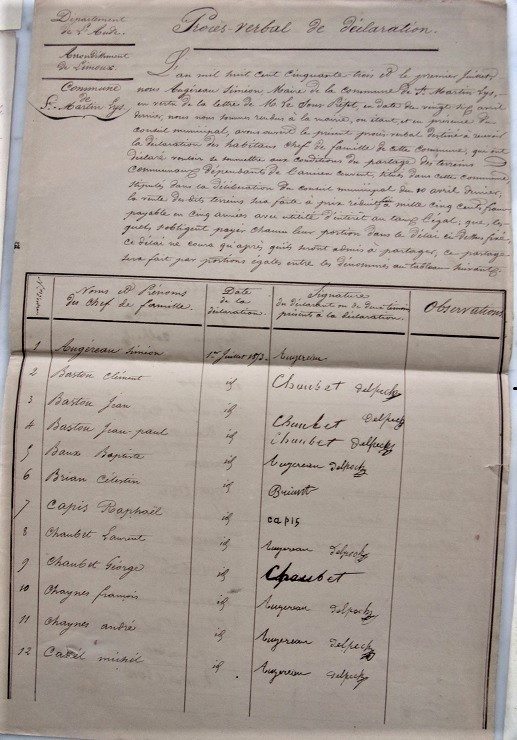 Département
de l'Aude.
Arrondissement
de Limoux.
Commune
de
St Martin Lys.
Procès-verbal de déclaration.
L'an mil huit cent cinquante trois et le premier juillet
nous Augéreau Siméon, Maire de la Commune de St Martin Lys,
en vertu de la lettre de Mr le Sous Préfet, en date du vingt sept avril
dernier, nous nous sommes rendus à la mairie, ou étant, et en présence du
conseil municipal, avons ouvert le présent procès verbal destiné à recevoir
la déclaration des habitans chef de famille de cette commune, qui ont
déclaré vouloir se soumettre aux conditions du partage des terreins
communaux dépendants de l'ancien couvent, situés dans cette commune,
stipulés dans la délibération du conseil municipal du 10 avril dernier,
la vente du dits terreins sera faite à prix de mille cinq cents francs
payable en cinq années avec intérêt au taux légal, que les
quels s'obligent payer chacun leur portion dans le délai ci dessus fixé,
ce délai ne coura qu'après qu'ils seront admis à partager, ce partage
sera fait par portions égales entre les dénommés au tableau suivant.
Noms et Prénoms
du chef de famille.
Date
de la
déclaration.
Signature
du déclarant ou de deux témoins
présents à la déclaration.
Observations
1 Augéreau Siméon 1er Juillet 1853. Augereau
2 Bastou Clément id Chaubet Delpech
3 Bastou Jean id Chaubet Delpech
4 Bastou Jean paul id Chaubet Delpech
5 Baux Baptiste id Augereau Delpech
6 Brian Célestin id
7 Capis Raphaël id capis
8 Chaubet Laurent id Augereau Delpech
9 Chaubet George id Chaubet
10 Chaynes françois id Augereau Delpech
11 Chaynes andré id Augereau Delpech
12 michel id Augereau Delpech